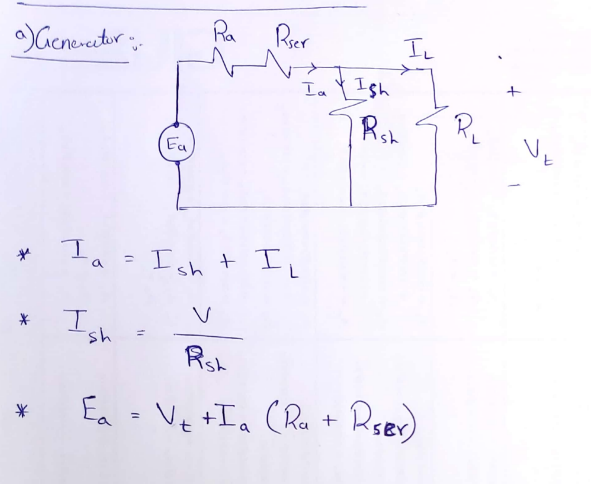 a) Generator :-
Ra Rser IL
Ia Ish
Ea Rsh RL + Vt -
* Ia = Ish + IL
* Ish = V / Rsh
* Ea = Vt + Ia (Ra + Rser)